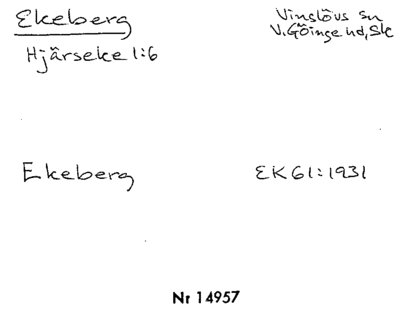 Ekeberg
Vinslövs sn
V. Göinge hd, Sk
Hjärseke 1:6
Ekeberg
EK61:1931
Nr 14957